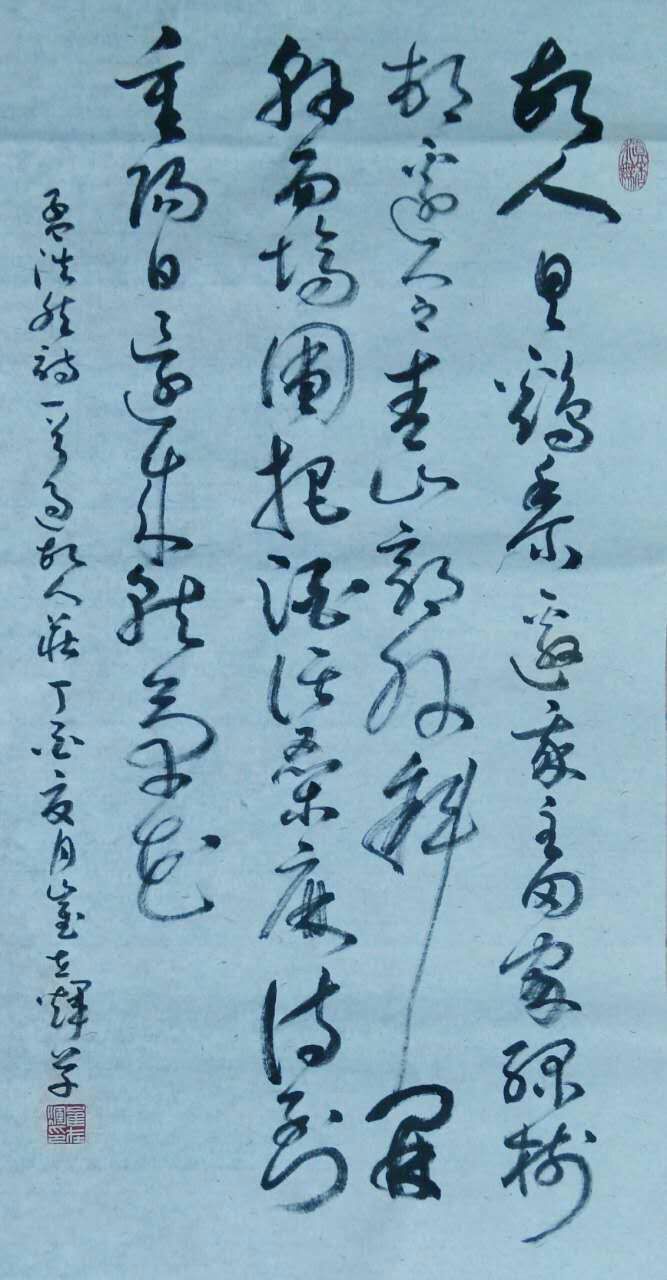 故人具鷄黍邀我至田家緑樹
村邊合青山郭外斜開
軒面場圃把酒話桑麻待到
重陽日還來就菊花
孟浩然詩一首過故人莊丁酉夏月崔左輝草